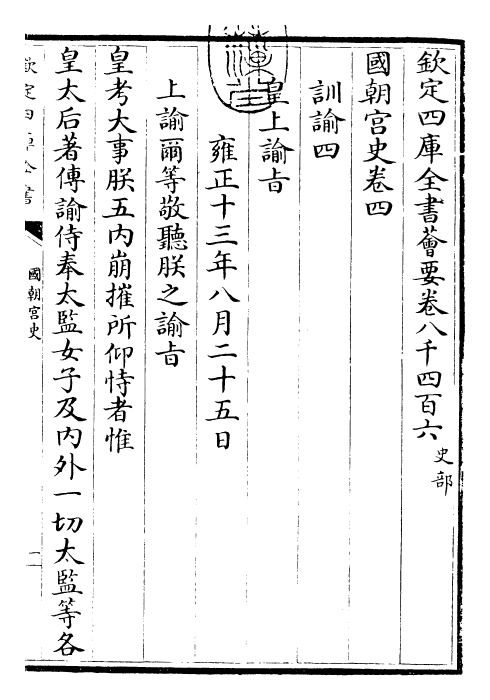 欽定四庫全書薈要卷八千四百六 史部
國朝宮史卷四
訓諭四
皇上諭㫖
雍正十三年八月二十五日
上諭爾等敬聽朕之諭㫖
皇考大事朕五內崩摧所仰恃者惟
皇太后著傳諭侍奉太監女子及內外一切太監等各
欽定四庫全書
國朝宮史
一